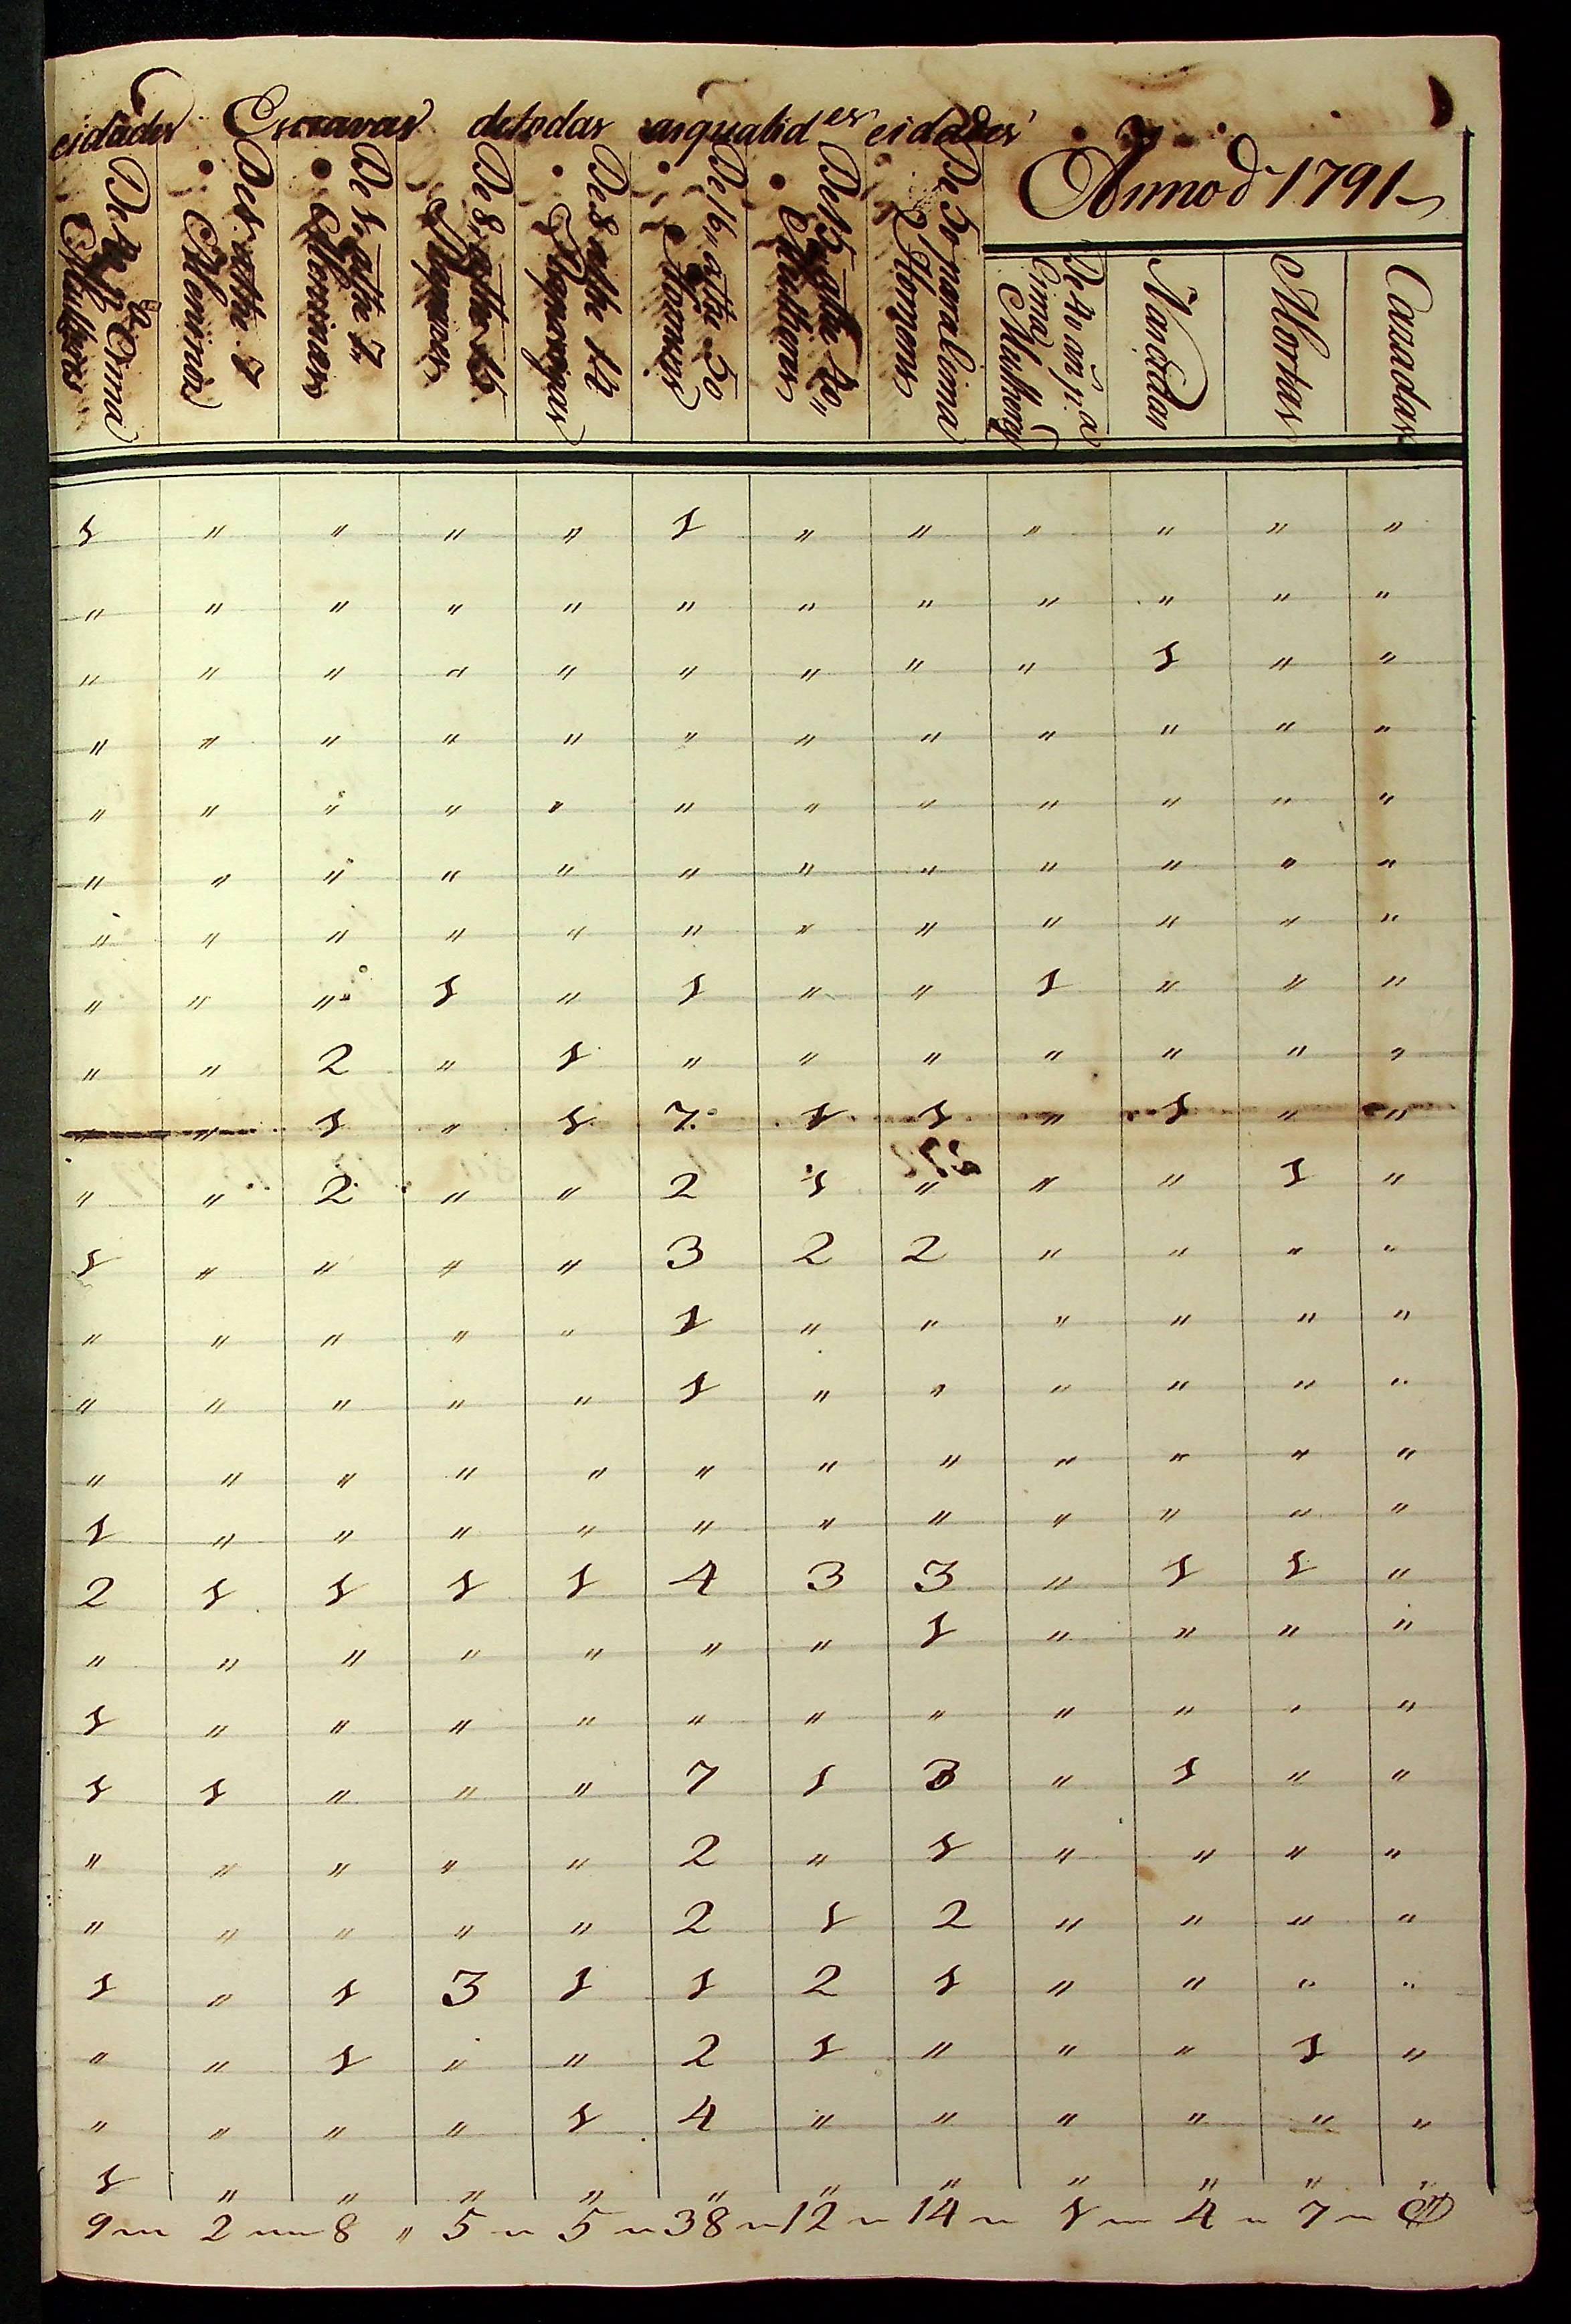 eidades Escravas de todas as qualid.es eidades
Anno d 1791
De 40 p.a Cima Mulheres
De 1 athe 7 Meninas
De 1, athe 7 Meninos
De 8, athe 15 Rapazes
De 8 athe 14 Raparigas
De 16 athe 50 Homens
De 15 athe 40,, Mulheres
De 50 para Cima Homens
De 40 añ p.a Cima Mulheres
Nascidas
Mortas
Cazadas
1 " " " " 1 " " " " " "
" " " " " " " " " " " "
" " " " " " " " " 1 " "
" " " " " " " " " " " "
" " " " " " " " " " " "
" " " " " " " " " " " "
" " " " " " " " " " " "
" " " 1 " 1 " " 1 " " "
" " 2 " 1 " " " " " " "
" " 1 " 1 7 1 1 " 1 " "
" " 2 " " 2 1 " " " 1 "
1 " " " " 3 2 2 " " " "
" " " " " 1 " " " " " "
" " " " " 1 " " " " " "
" " " " " " " " " " " "
1 " " " " " " " " " " "
2 1 1 1 1 4 3 3 " 1 1 "
" " " " " " " 1 " " " "
1 " " " " " " " " " " "
1 1 " " " 7 1 3 " 1 " "
" " " " " 2 " 1 " " " "
" " " " " 2 1 2 " " " "
1 " 1 3 1 1 2 1 " " " "
" " 1 " " 2 1 " " " 1 "
" " " " 1 4 " " " " " "
1 " " " " " " " " " " "
9 2 8 " 5 5 38 12 14 1 4 7